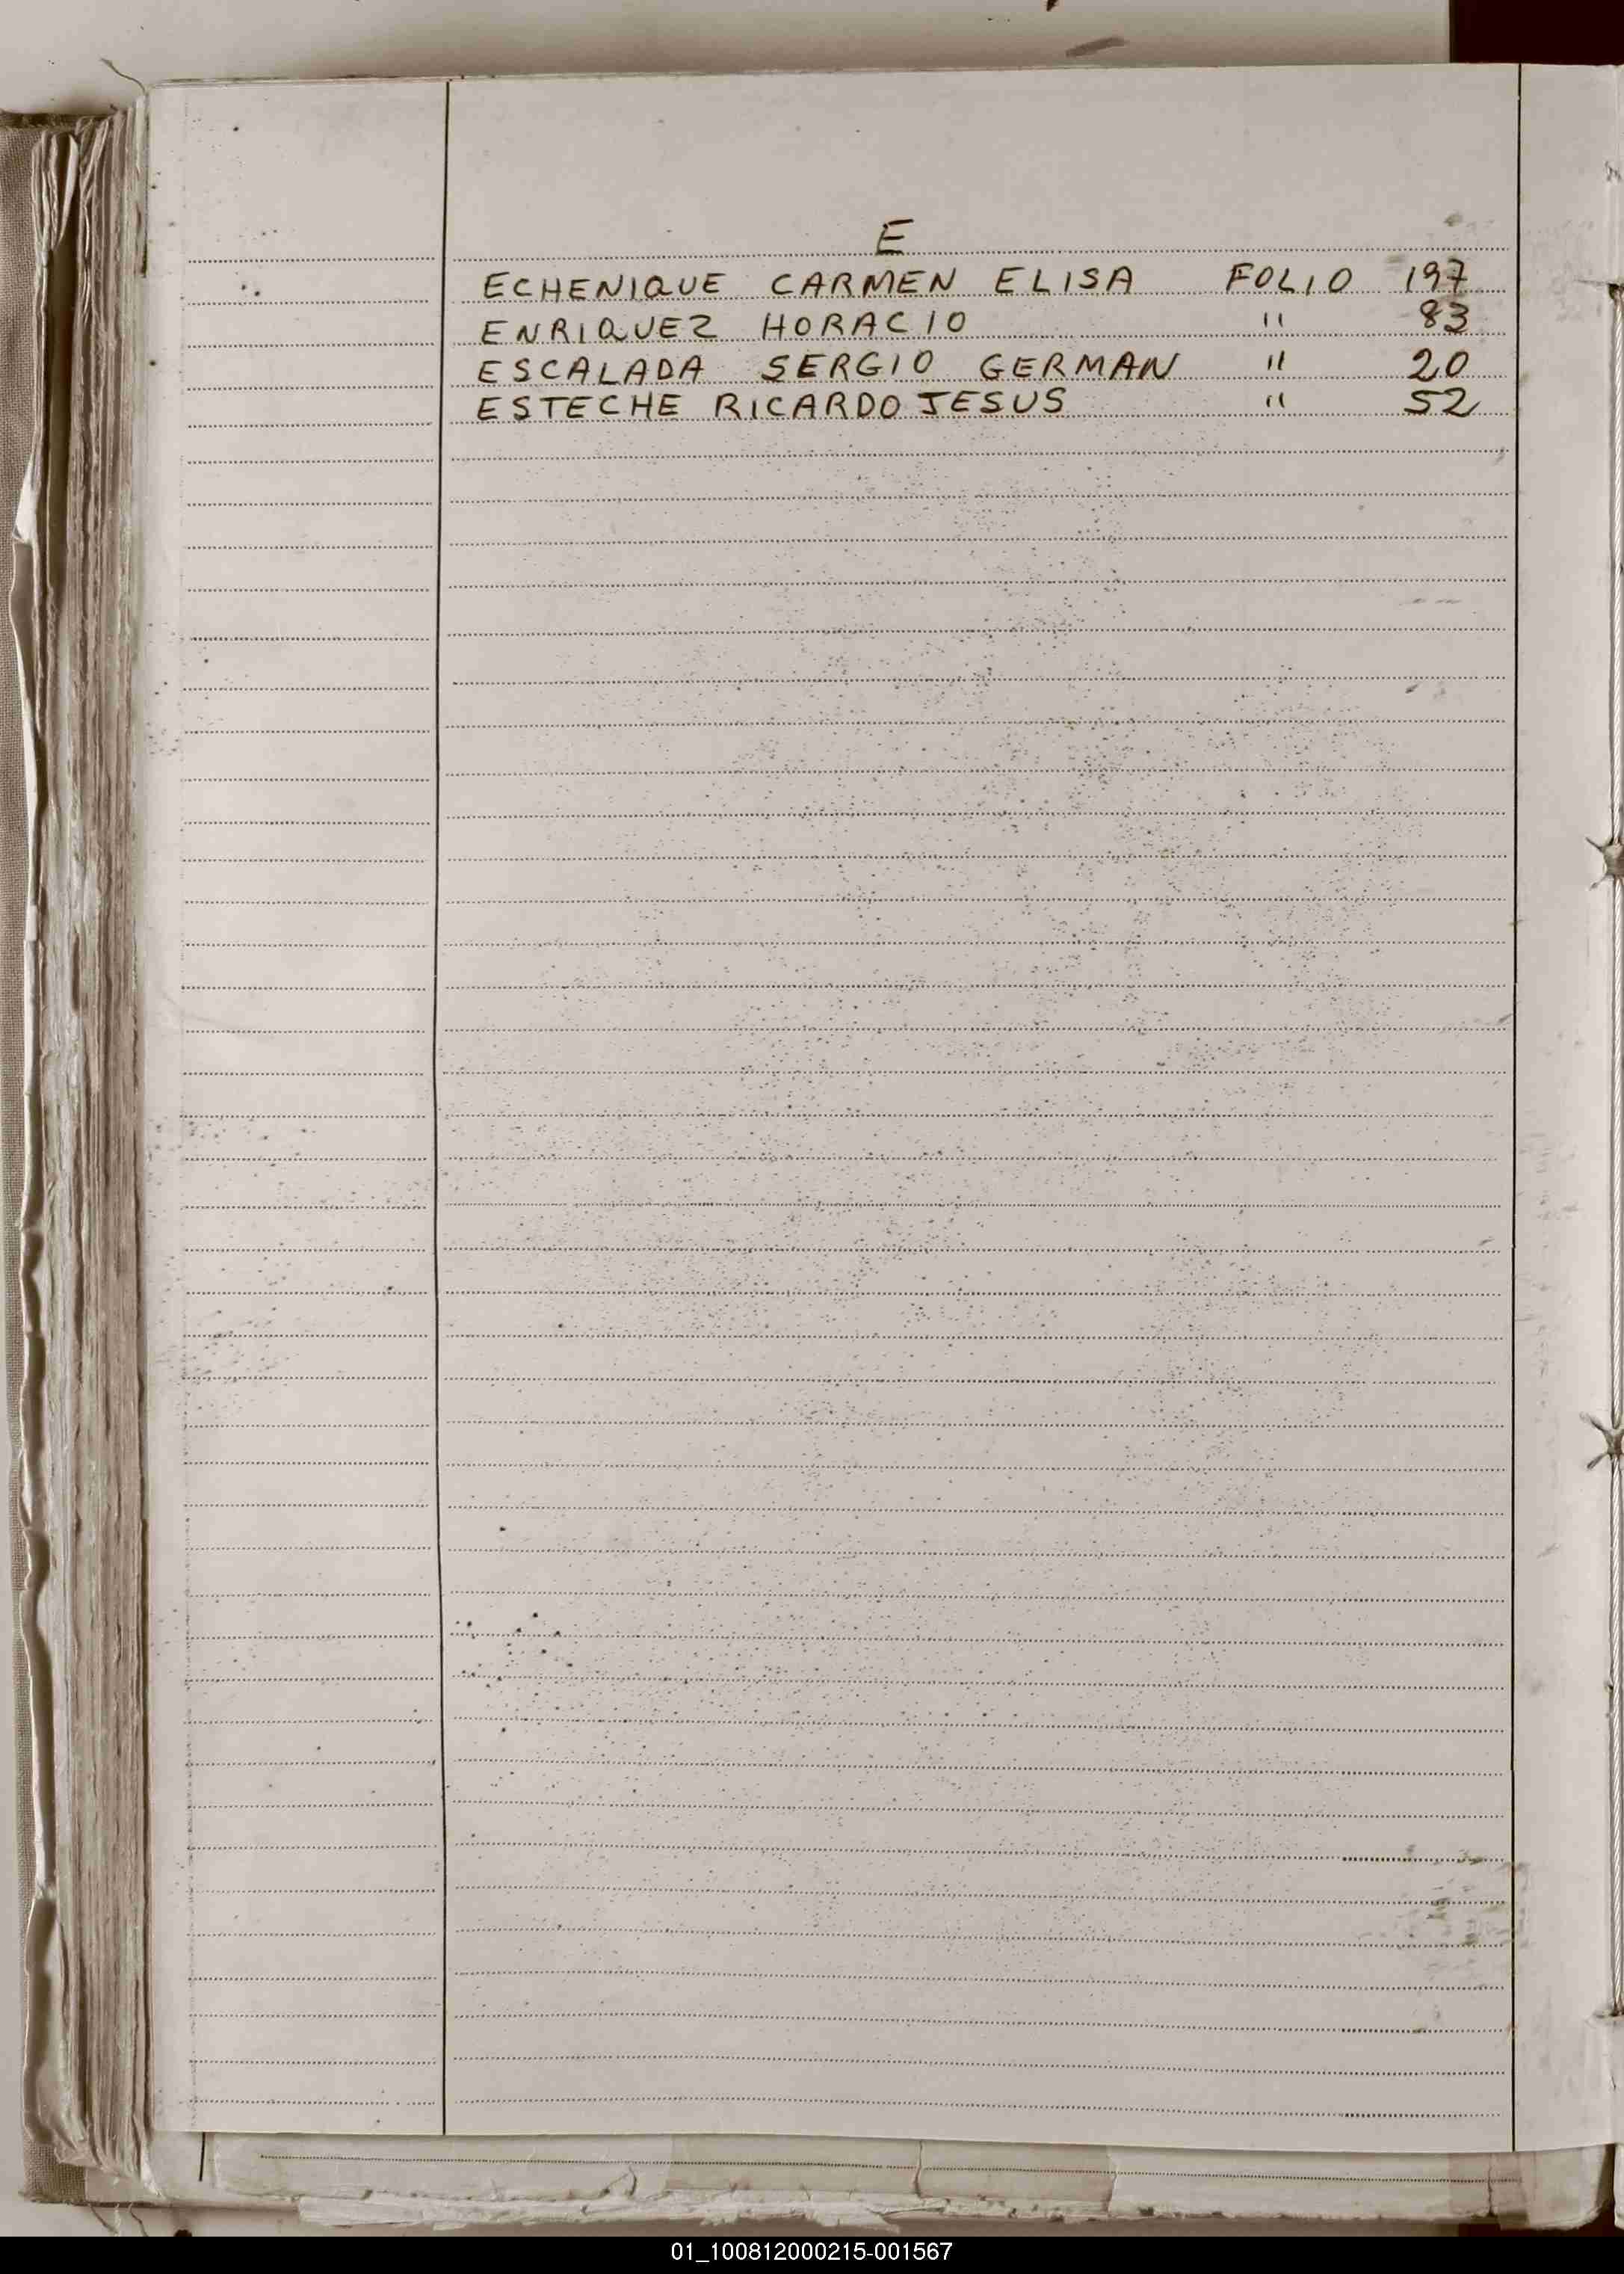 E
ECHENIQUE CARMEN ELISA FOLIO 197
ENRIQUEZ HORACIO " 83
ESCALADA SERGIO GERMAN " 20
ESTECHE RICARDO JESUS " 52
01_100812000215-001567